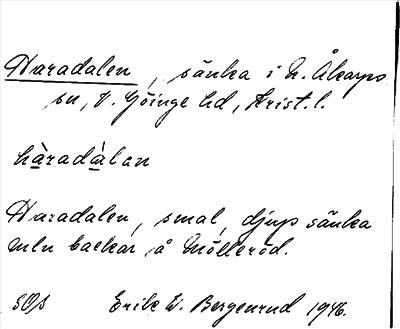 Haradalen, sänka i N. Åkarps
sn, V. Göinge hd, Krist. l.
hàradàlan
Haradalen, smal, djup sänka
mln backar å Mölleröd.
SOS Erik W. Bergenrud 1946.